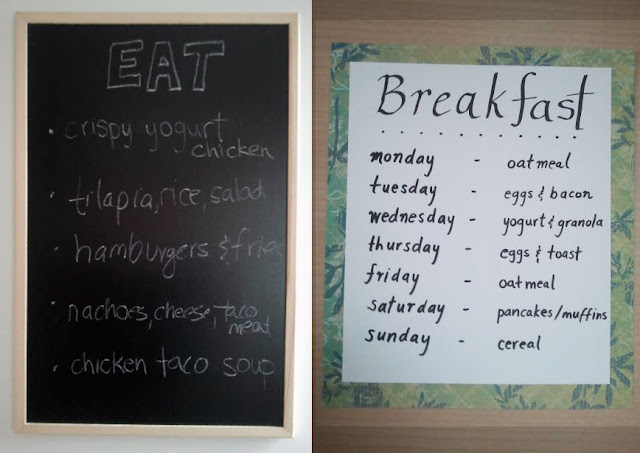 EAT
• crispy yogurt
chicken
• tilapia, rice, salad
• hamburgers & fries
• nachoes, cheese, taco
meat
• chicken taco soup
Breakfast
monday - oatmeal
tuesday - eggs & bacon
wednesday - yogurt & granola
thursday - eggs & toast
friday - oatmeal
saturday - pancakes/muffins
sunday - cereal